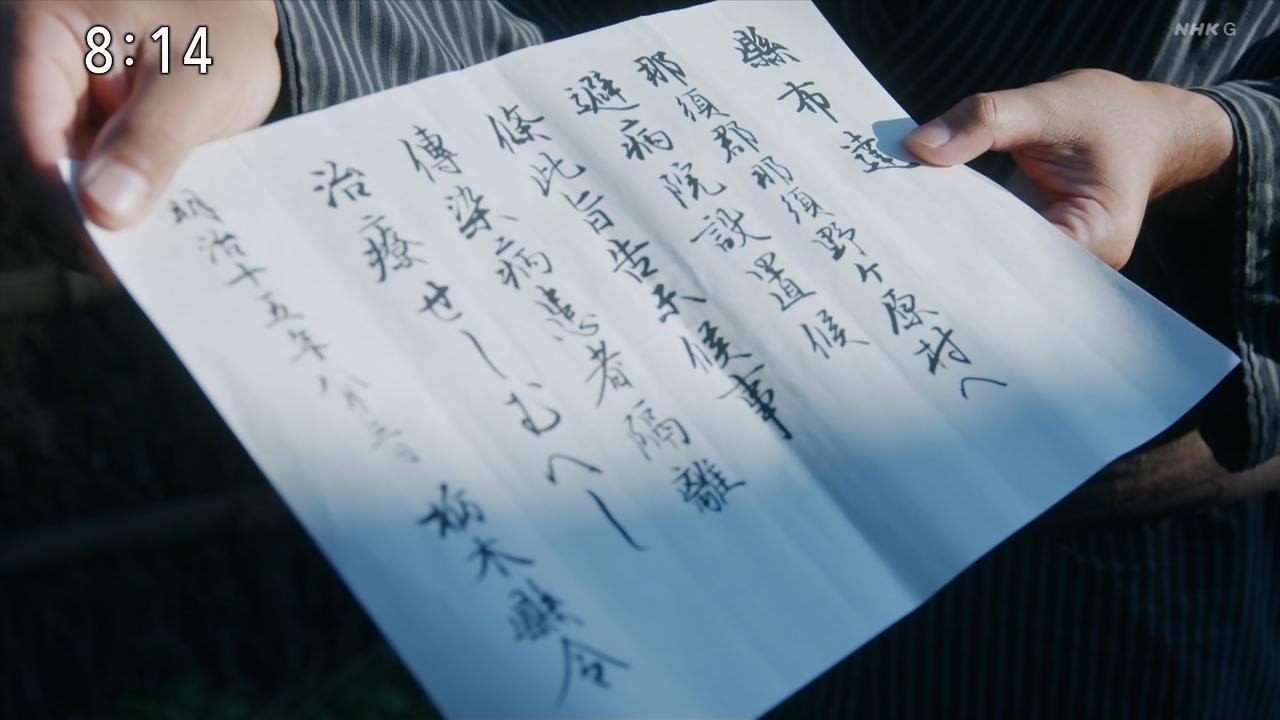 8:14
NHK G
縣布達
那須郡那須野ヶ原村へ
避病院設置候
條此旨告示候事
傳染病患者隔離
治療せしむへし
明治十五年八月三日
栃木縣令